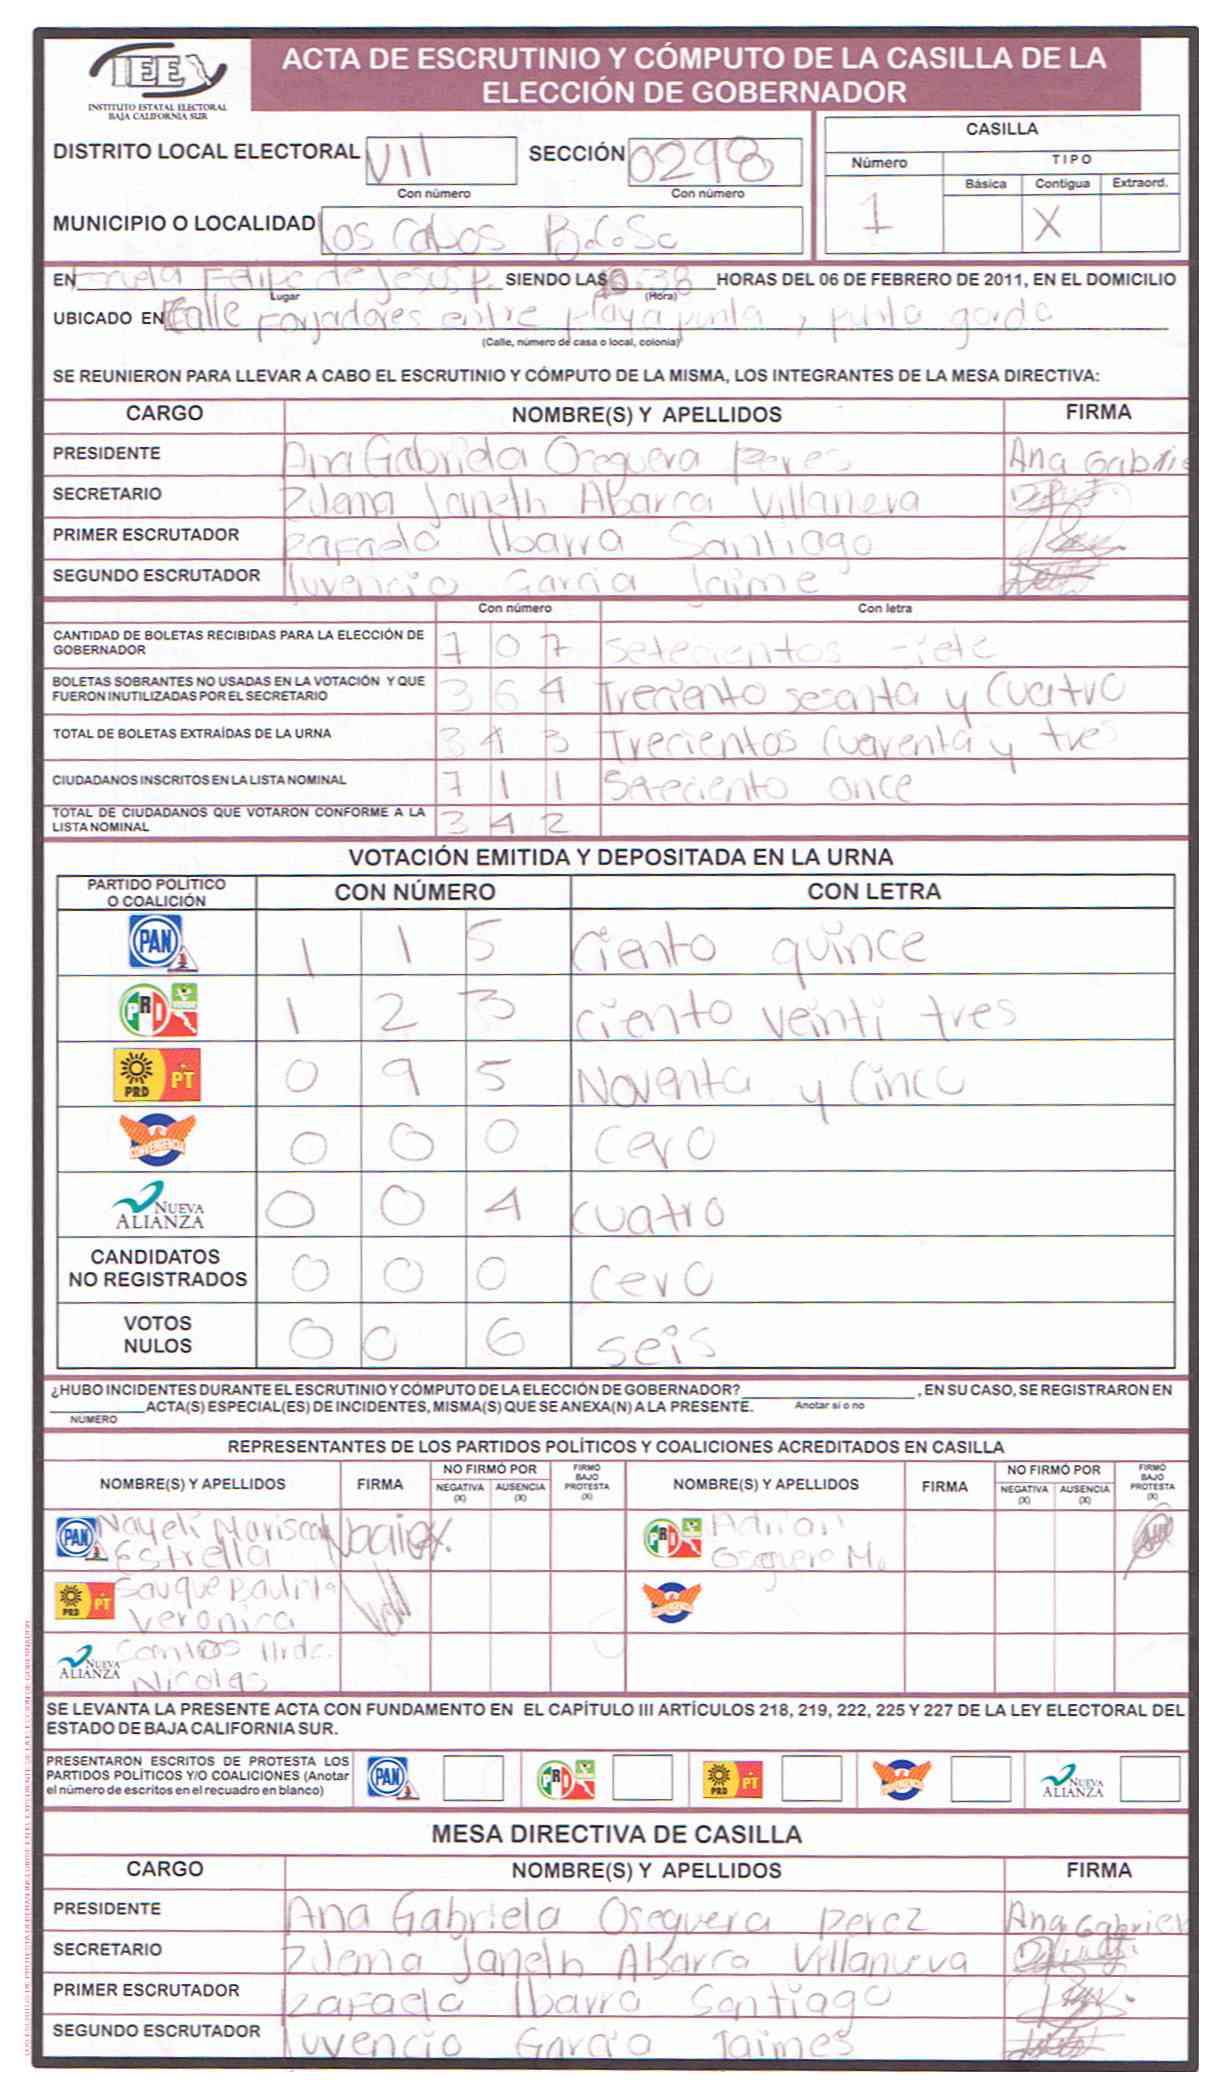 IEE
INSTITUTO ESTATAL ELECTORAL
BAJA CALIFORNIA SUR
ACTA DE ESCRUTINIO Y CÓMPUTO DE LA CASILLA DE LA
ELECCIÓN DE GOBERNADOR
DISTRITO LOCAL ELECTORAL VII SECCIÓN 0298
Con número Con número
MUNICIPIO O LOCALIDAD los cabos B.C.S.
CASILLA
Número TIPO
Básica Contigua Extraord.
1 X
EN Escuela Felipe de Jesus P. SIENDO LAS HORAS DEL 06 DE FEBRERO DE 2011, EN EL DOMICILIO
Lugar (Hora)
UBICADO EN Calle Forjadores entre playa punta y punta gorda
(Calle, número de casa o local, colonia)
SE REUNIERON PARA LLEVAR A CABO EL ESCRUTINIO Y CÓMPUTO DE LA MISMA, LOS INTEGRANTES DE LA MESA DIRECTIVA:
CARGO NOMBRE(S) Y APELLIDOS FIRMA
PRESIDENTE Ana Gabriela Oseguera Peres Ana Gabrie
SECRETARIO Zulema Janeth Abarca Villaneva
PRIMER ESCRUTADOR Rafaela Ibarra Santiago
SEGUNDO ESCRUTADOR Juvencio Garcia Jaime
Con número Con letra
CANTIDAD DE BOLETAS RECIBIDAS PARA LA ELECCIÓN DE
GOBERNADOR 7 0 7 Setecientos siete
BOLETAS SOBRANTES NO USADAS EN LA VOTACIÓN Y QUE
FUERON INUTILIZADAS POR EL SECRETARIO 3 6 4 Treciento sesanta y Cuatro
TOTAL DE BOLETAS EXTRAÍDAS DE LA URNA 3 4 3 Trecientos Cuarenta y tres
CIUDADANOS INSCRITOS EN LA LISTA NOMINAL 7 1 1 Seteciento once
TOTAL DE CIUDADANOS QUE VOTARON CONFORME A LA
LISTA NOMINAL 3 4 2
VOTACIÓN EMITIDA Y DEPOSITADA EN LA URNA
PARTIDO POLÍTICO
O COALICIÓN CON NÚMERO CON LETRA
PAN 1 1 5 Ciento quince
PRI VERDE 1 2 3 Ciento veinti tres
PRD PT 0 9 5 Noventa y Cinco
CONVERGENCIA 0 0 0 cero
NUEVA ALIANZA 0 0 4 cuatro
CANDIDATOS
NO REGISTRADOS 0 0 0 cero
VOTOS
NULOS 0 0 6 seis
¿HUBO INCIDENTES DURANTE EL ESCRUTINIO Y CÓMPUTO DE LA ELECCIÓN DE GOBERNADOR? , EN SU CASO, SE REGISTRARON EN
ACTA(S) ESPECIAL(ES) DE INCIDENTES, MISMA(S) QUE SE ANEXA(N) A LA PRESENTE. Anotar si o no
NUMERO
REPRESENTANTES DE LOS PARTIDOS POLÍTICOS Y COALICIONES ACREDITADOS EN CASILLA
NOMBRE(S) Y APELLIDOS FIRMA NO FIRMÓ POR NEGATIVA (X) AUSENCIA (X) FIRMÓ BAJO PROTESTA (X) NOMBRE(S) Y APELLIDOS FIRMA NO FIRMÓ POR NEGATIVA (X) AUSENCIA (X) FIRMÓ BAJO PROTESTA (X)
PAN Nayeli Mariscal
Estrella
PRI VERDE Adrian
Oseguera M.
PRD PT
Veronica
CONVERGENCIA
NUEVA ALIANZA
Nicolas
SE LEVANTA LA PRESENTE ACTA CON FUNDAMENTO EN EL CAPÍTULO III ARTÍCULOS 218, 219, 222, 225 Y 227 DE LA LEY ELECTORAL DEL
ESTADO DE BAJA CALIFORNIA SUR.
PRESENTARON ESCRITOS DE PROTESTA LOS
PARTIDOS POLÍTICOS Y/O COALICIONES (Anotar
el número de escritos en el recuadro en blanco)
PAN PRI VERDE PRD PT CONVERGENCIA NUEVA ALIANZA
MESA DIRECTIVA DE CASILLA
CARGO NOMBRE(S) Y APELLIDOS FIRMA
PRESIDENTE Ana Gabriela Oseguera Perez Ana Gabriel
SECRETARIO Zulema Janeth Abarca Villanueva
PRIMER ESCRUTADOR Rafaela Ibarra Santiago
SEGUNDO ESCRUTADOR Juvencio Garcia Jaimes